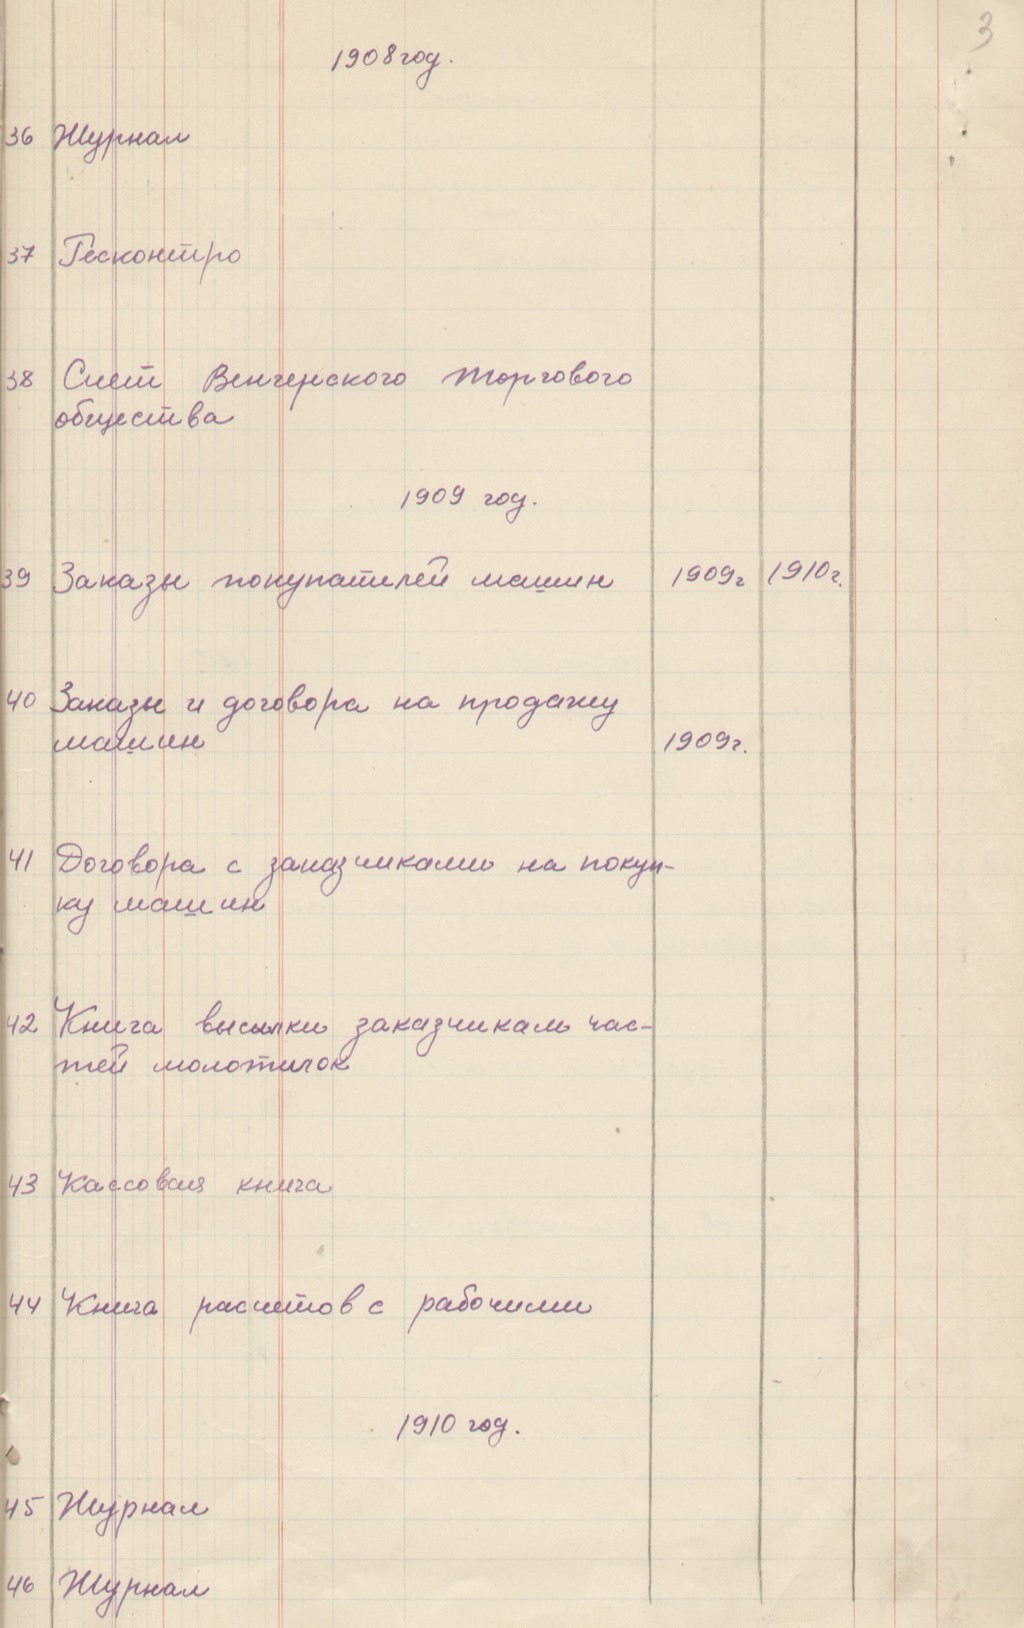 3
1908 год.
36 Журнал
37 Рисконтро
38 Счет Венгерского торгового
общества
1909 год.
39 Заказы покупателей машин 1909г 1910г.
40 Заказы и договора на продажу
машин 1909г.
41 Договора с заказчиками на покуп-
ку машин
42 Книга высылки заказчикам час-
тей молотилок
43 Кассовая книга
44 Книга расчетов с рабочими
1910 год.
45 Журнал
46 Журнал